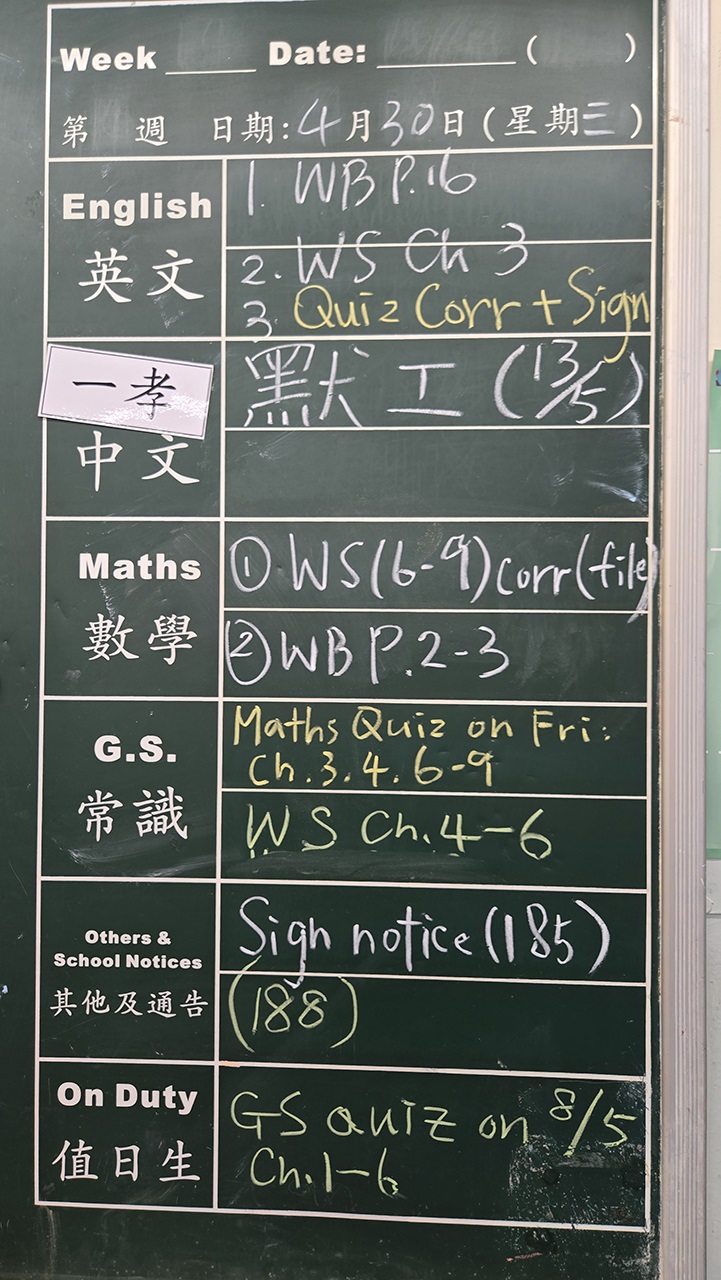 Week ____ Date: ______ ( )
第 週 日期:4月30日(星期三)
English
英文
1. WB P.16
2. WS Ch 3
3. Quiz Corr + Sign
一孝
中文
默工(13/5)
Maths
數學
① WS(6-9)corr(file)
② WB P.2-3
G.S.
常識
Maths Quiz on Fri:
Ch.3.4.6-9
WS Ch.4-6
Others &
School Notices
其他及通告
Sign notice(185)
(188)
On Duty
值日生
GS quiz on 8/5
Ch.1-6